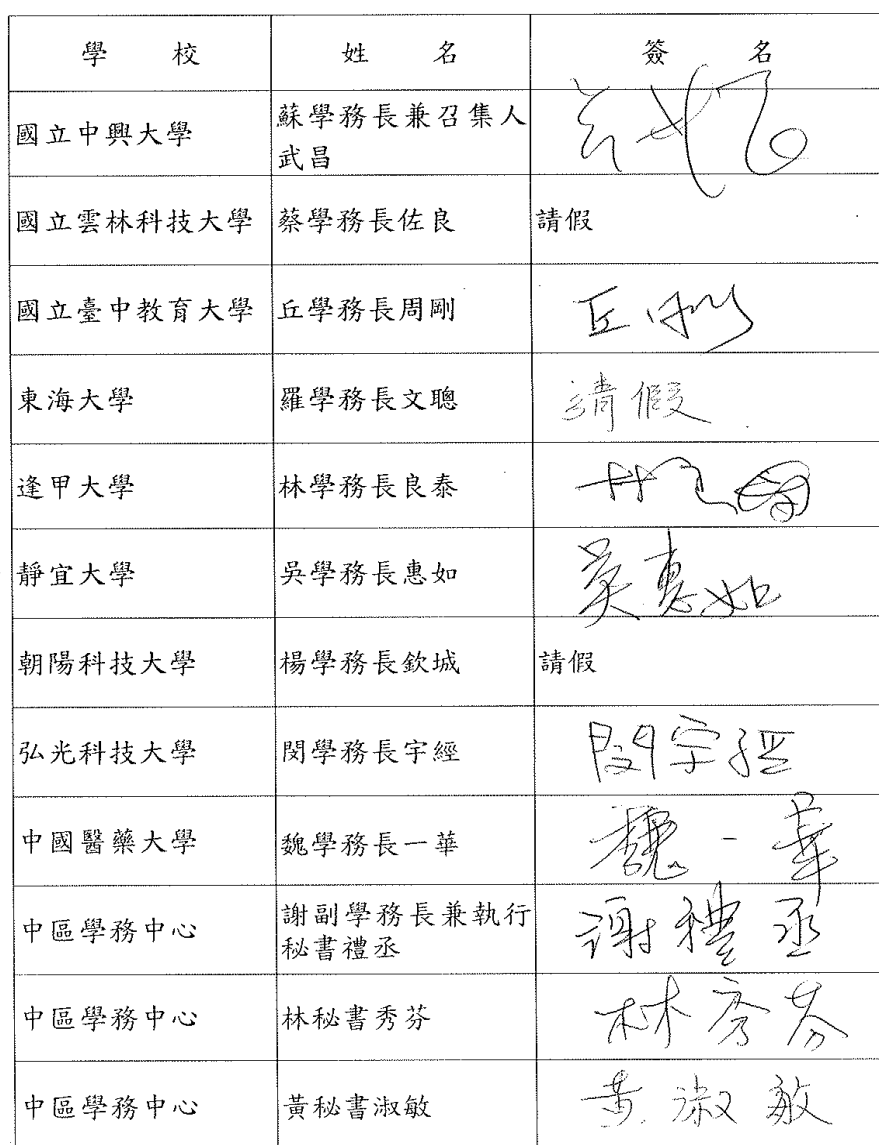 學校 姓名 簽名
國立中興大學 蘇學務長兼召集人
武昌
國立雲林科技大學 蔡學務長佐良 請假
國立臺中教育大學 丘學務長周剛 丘
東海大學 羅學務長文聰 請假
逢甲大學 林學務長良泰
靜宜大學 吳學務長惠如 吳惠如
朝陽科技大學 楊學務長欽城 請假
弘光科技大學 閔學務長宇經 閔宇經
中國醫藥大學 魏學務長一華 魏一華
中區學務中心 謝副學務長兼執行
秘書禮丞 謝禮丞
中區學務中心 林秘書秀芬 林秀芬
中區學務中心 黃秘書淑敏 黃淑敏